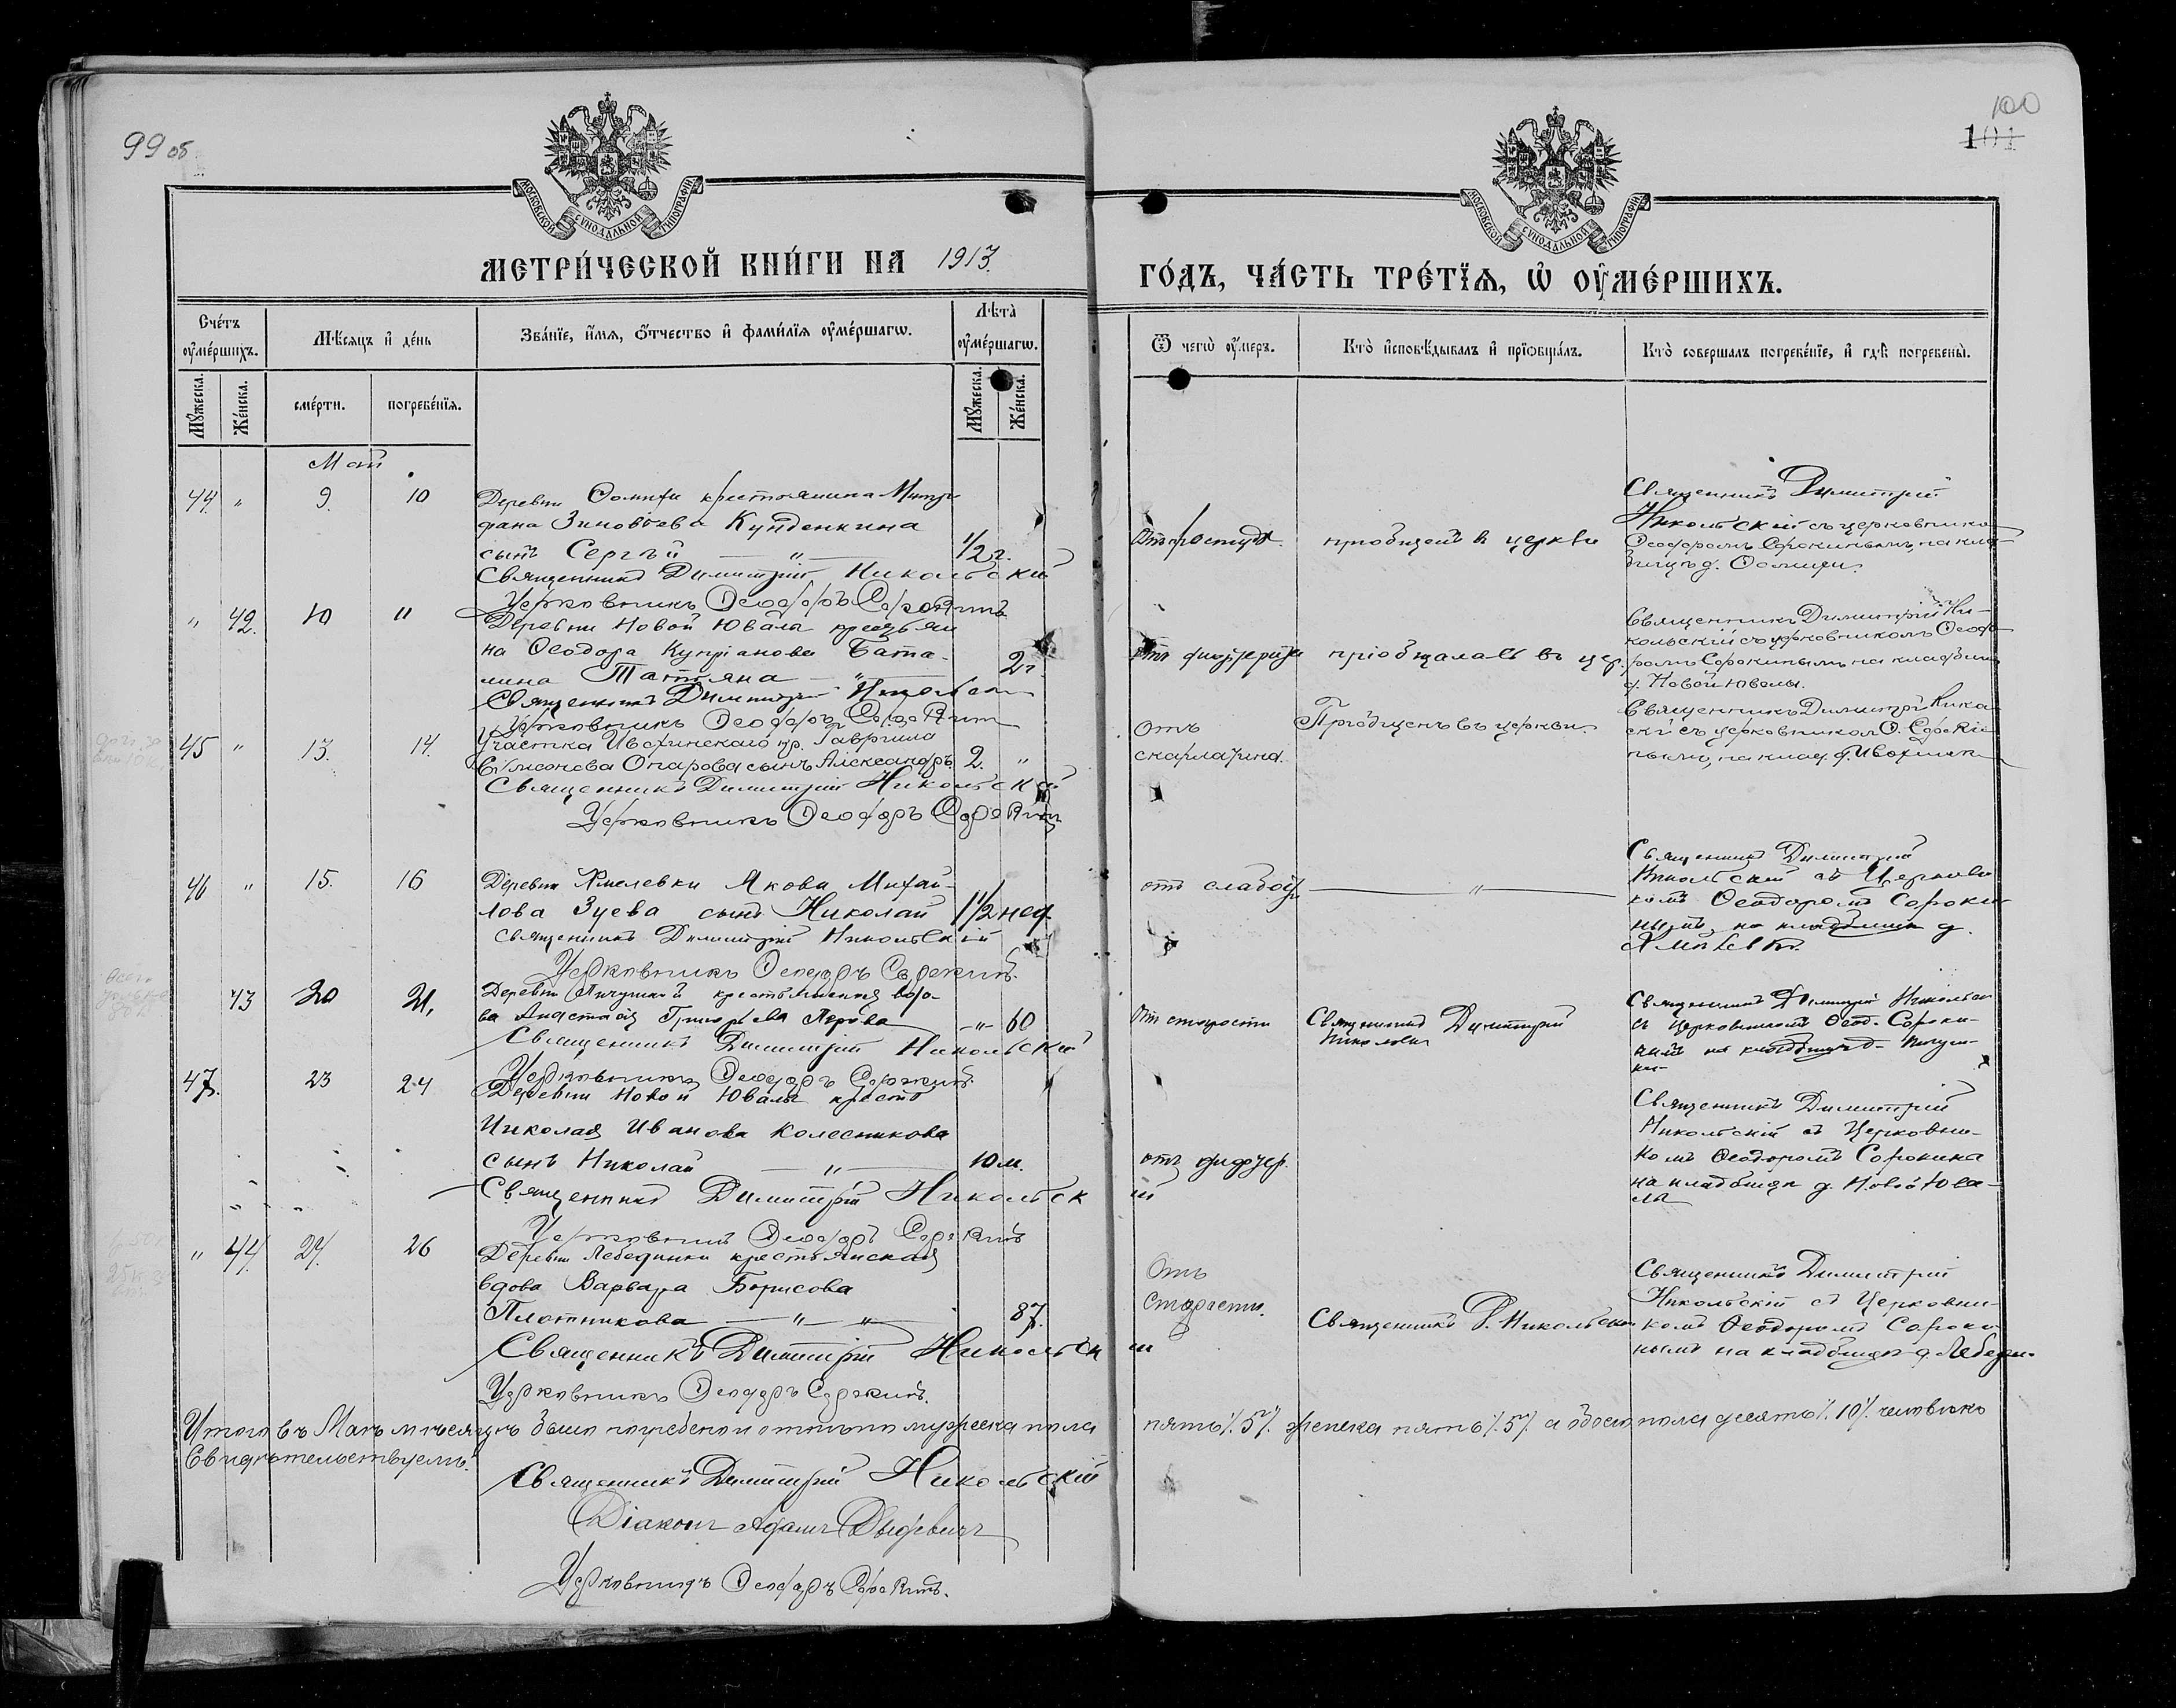 99 об
100
101
МОСКОВСКОЙ СѴНОДАЛЬНОЙ ТИПОГРАФІИ
МОСКОВСКОЙ СѴНОДАЛЬНОЙ ТИПОГРАФІИ
МЕТРИ́ЧЕСКОЙ КНИ́ГИ НА 1913.
ГО́ДЪ, ЧА́СТЬ ТРЕ́ТЇѦ, Ѡ҆ ОУ҆МЕ́РШИХЪ.
Сче́тъ оу҆ме́ршихъ.
Мѣ́сяцъ и҆ де́нь
Зва́нїе, и҆́мѧ, ѻ҆́тчество и҆ фами́лїѧ оу҆ме́ршагѡ.
Лѣта̀ оу҆ме́ршагѡ.
Ѿ чегѡ̀ оу҆́меръ.
Кто̀ и҆сповѣ́дывалъ и҆ прїѻбща́лъ.
Кто̀ соверша́лъ погребе́нїе, и҆ гдѣ̀ погребены̀.
Мꙋ́жеска.
Же́нска.
сме́рти.
погребе́нїѧ.
Мꙋ́жеска.
Же́нска.
Май
44. " 9. 10
Деревни крестьянина
Зиновьева Кунденкина
сынъ Сергѣй — " — 1/2 г.
Священникъ Димитрій Никольскій
Церковникъ Ѳеодоръ Сорокинъ
От простуды. пробщенъ в церкви
Священникъ Димитрій
Никольскій съ церковнико
Ѳеодоромъ Сорокинымъ, на клад
бищѣ д.
" 42. 10 11
Деревни Новой Ювалы крестьян
на Ѳеодора Купріанова Бата-
лина Татіяна — " — 2 г.
Священникъ Димитрій Никольск
Церковникъ Ѳеодоръ Сорокинъ
отъ дифтерита пріобщалась въ цер.
Священникъ Димитрій Ни-
кольскій съ церковникомъ Ѳеодо
ромъ Сорокинымъ на кладбищ
д. Новой Ювалы.
45 " 13. 14.
Участка Ивохинскаго кр. Гавріила
Сумеонова Опарова сынъ Александръ 2. "
Священникъ Димитрій Никольскій
Церковникъ Ѳеодоръ Сорокинъ
отъ
скарлатина.
Пріобщенъ въ церкви.
Священникъ Димитрій Нико
скій съ церковником Ѳ. Сороки
нымъ, на клад. д. Ивохинск
46 " 15. 16
Деревни Хмелевки Якова Михай-
лова Зуева сынъ Николай 1 1/2 нед.
священникъ Димитрій Никольскій
Церковникъ Ѳеодоръ Сорокинъ.
отъ слабос. — " —
Священникъ Димитрій
Никольскій съ Церковни
комъ Ѳеодоромъ Сороки
нымъ, на кладбищѣ д.
Хмелевк.
43 20 21.
Деревни Пичугиной крестьянская вдо-
ва Анастасія Григорьева — " — 60
Священникъ Димитрій Никольскій
Церковникъ Ѳеодоръ Сорокинъ.
От старости
Священникъ Димитрій
Никольск
Священникъ Димитрій Никольск
съ церковникомъ Ѳеод. Сороки-
нымъ на кладбищѣ д. Пичуги-
47. 23 24
Деревни Новой Ювалы крест
Николая Иванова Колесникова
сынъ Николай — " — 10 м.
Священникъ Димитрій Никольскій
Церковникъ Ѳеодоръ Сорокинъ
отъ дифтер.
Священникъ Димитрій
Никольскій съ Церковни-
комъ Ѳеодоромъ Сорокина
на кладбищѣ д. Новой Юва-
лы
" 44. 24. 26
Деревни Лебединки крестьянская
вдова Варвара Борисова
Плотникова — " — " — 87.
Священникъ Димитрій Никольскій
Церковникъ Ѳеодоръ Сорокинъ.
Отъ
старости.
Священникъ Д. Никольск
Священникъ Димитрій
Никольскій съ Церковни-
комъ Ѳеодоромъ Сороки
нымъ на кладбищѣ д. Лебеди-
Итого въ Маѣ мѣсяцѣ было погребено мужеска пола пять /.5./ женска пять /.5./ а обоего пола десять /.10./ человѣкъ
Свидѣтельствуемъ:
Священникъ Димитрій Никольскій
Діаконъ Адамъ
Церковникъ Ѳеодоръ Сорокинъ.